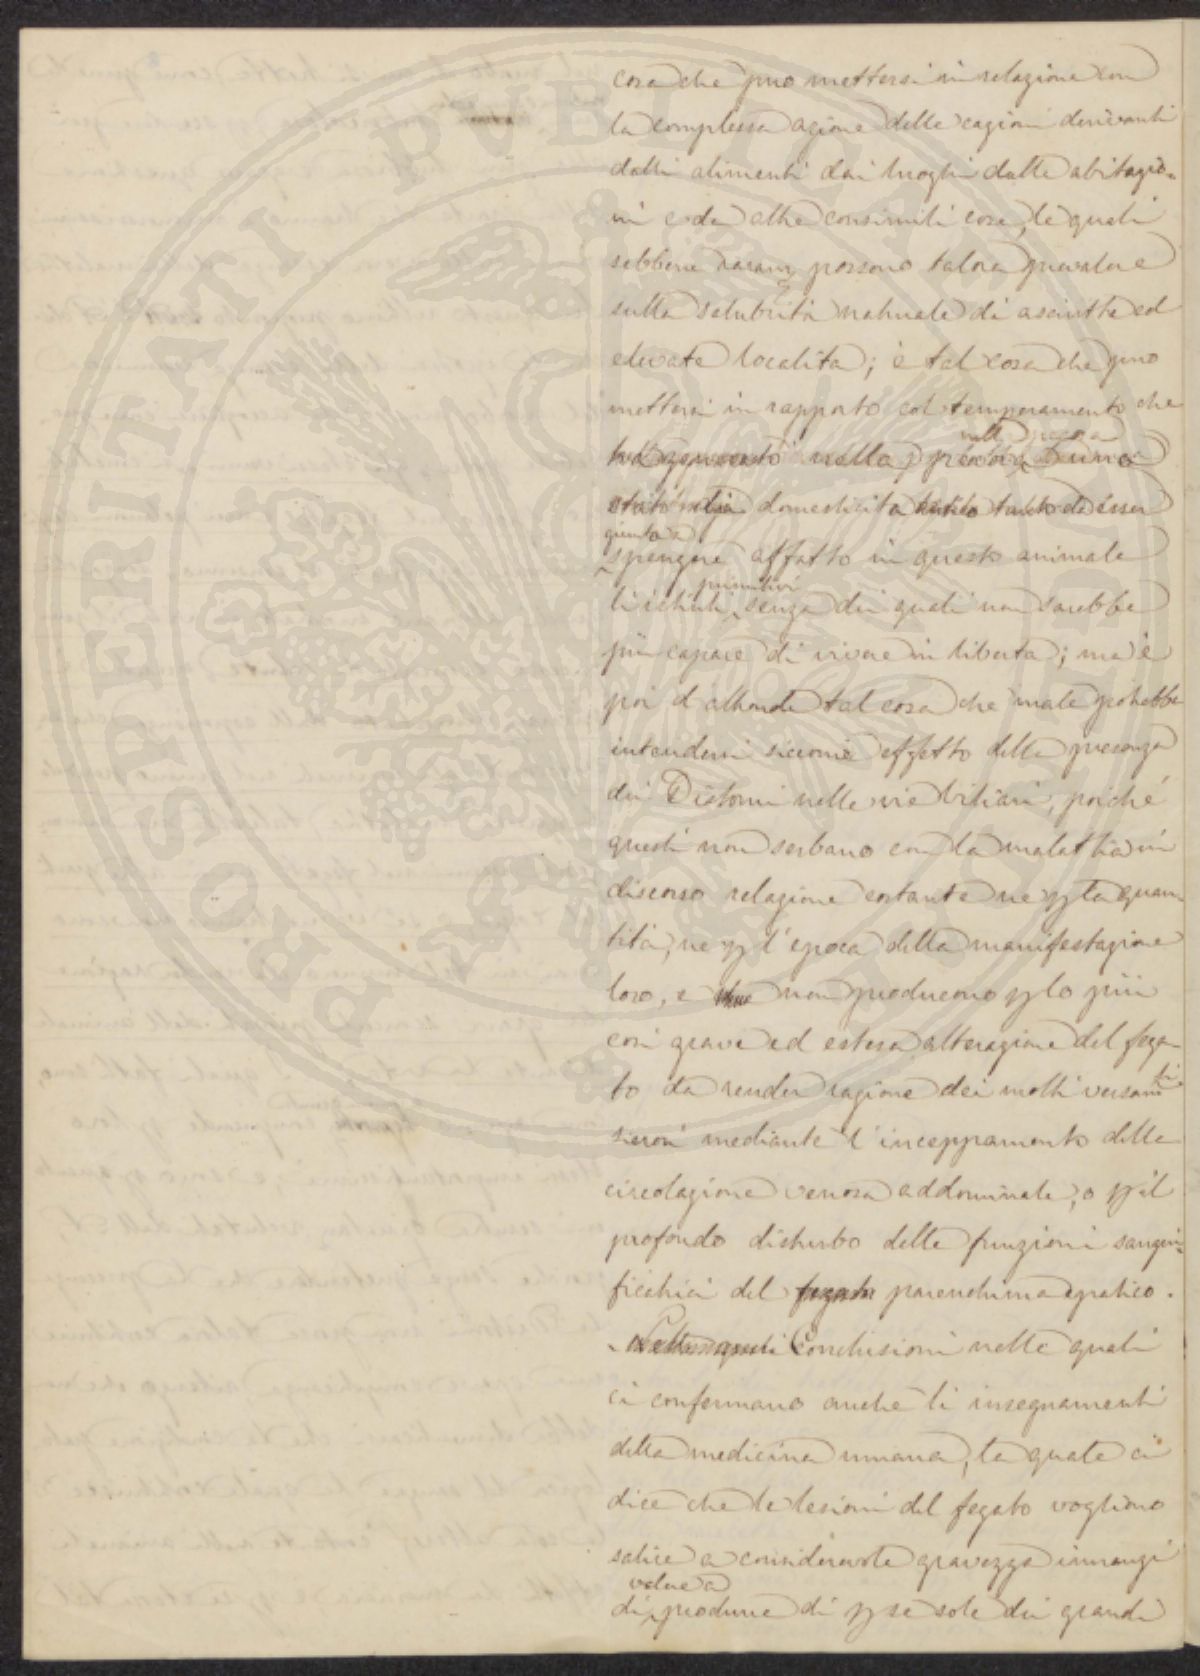 cosa che puo mettersi in relazione con
la complessa azione delle cagioni derivanti
dalli alimenti dai luoghi dalle abitazio-
ni e da altre consimili cose, le quali
sebbene possono talora prevalere
sulla salubrità naturale di asciutte ed
elevate località; è tal cosa che puo
mettersi in rapporto col temperamento che
nella pecora
nella pecora una
domesticita tanto da esser
giunta a
spengere affatto in questo animale
primitivi
li istinti, senza dei quali non sarebbe
più capace di vivere in libertà; ma è
poi d'altronde tal cosa che male potrebbe
intendersi siccome effetto della presenza
dei Distomi nelle vie biliari, poiché
questi non serbano con la malattia in
discorso relazione costante ne p la quan
tità, ne p l'epoca della manifestazione
loro, e non producono p lo più
così grave ed estesa alterazione del fega-
to da render ragione dei molti versamti
sierosi mediante l'inceppamento della
circolazione venosa addominale, o p il
profondo disturbo delle funzioni sangui-
ficatrici del fegato parenchima epatico.
Conclusioni nelle quali
ci confermano anche li insegnamenti
della medicina umana, la quale ci
dice che le lesioni del fegato vogliono
salire a considerevole gravezza innanzi
valere a
di produrre di p se sole dei grandi